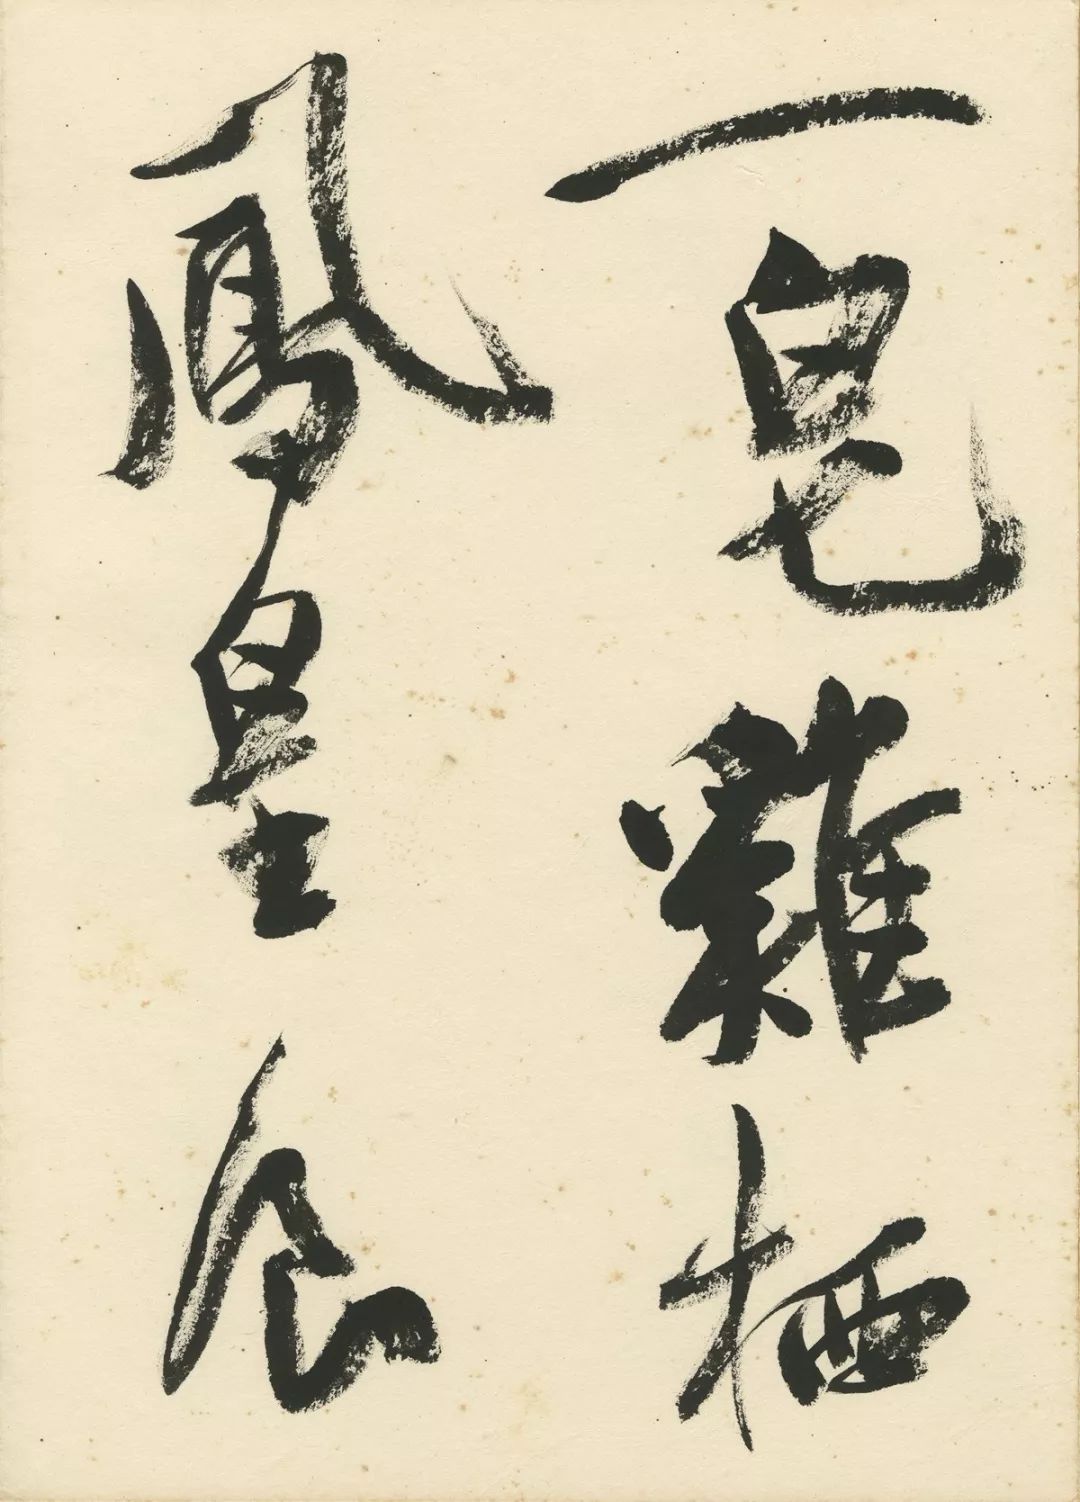 一皂雞栖
鳳皇食